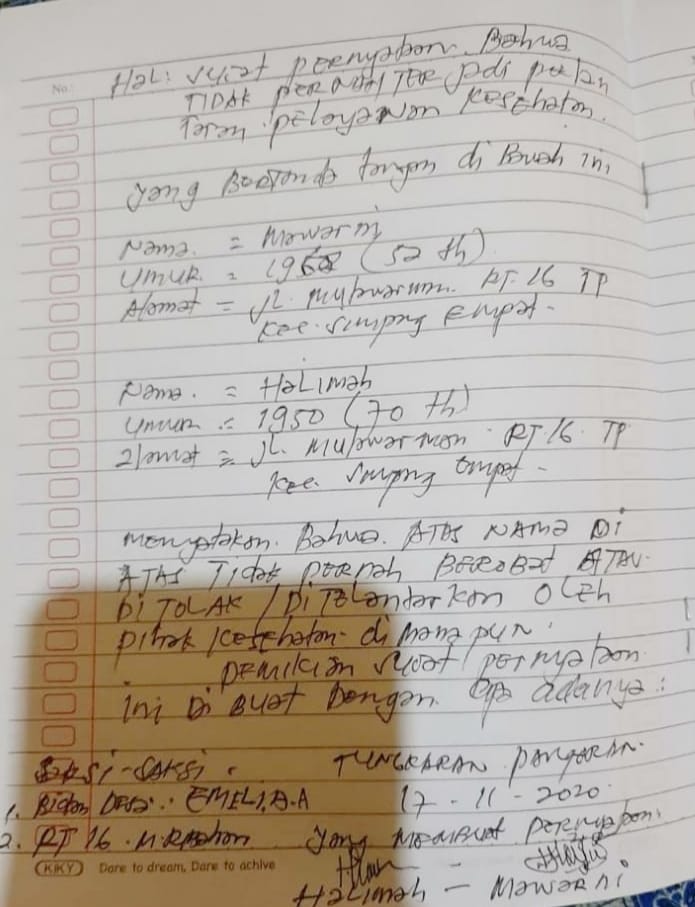 No.
Hal: surat pernyataan. Bahwa
TIDAK PERNAH TERJadi pelan
Taran pelayanan Kesehatan.
yang Bertanda tangan di Bwah ini
Nama. = Mawarni
Umur. = 1968 (52 th)
Alamat = JL. Mulawarman. RT. 16 TP
Kec. Simpang Empat -
Nama. = Halimah
Umur = 1950 (70 th)
Alamat = JL. Mulawarman RT 16 TP
Kec. Simpang Empat -
menyatakan. Bahwa. ATAS NAMA Di
ATAS Tidak PERNah BEROBat ATAU
Di TOLAK / Di Telantarkan OLEh
pihak Kesehatan di mana pun.
DEMIKIAN surat pernyataan
ini Di Buat Dengan. apa adanya:
SAKSi-SAKSi. TUNGKARAN PANGERAN.
1. Bidan Desa: EMELI.A.A 17-11-2020
2. RT 16. M. yang MEMBUAT PERNyataan.
KIKY Dare to dream, Dare to achive
Halimah - Mawarni